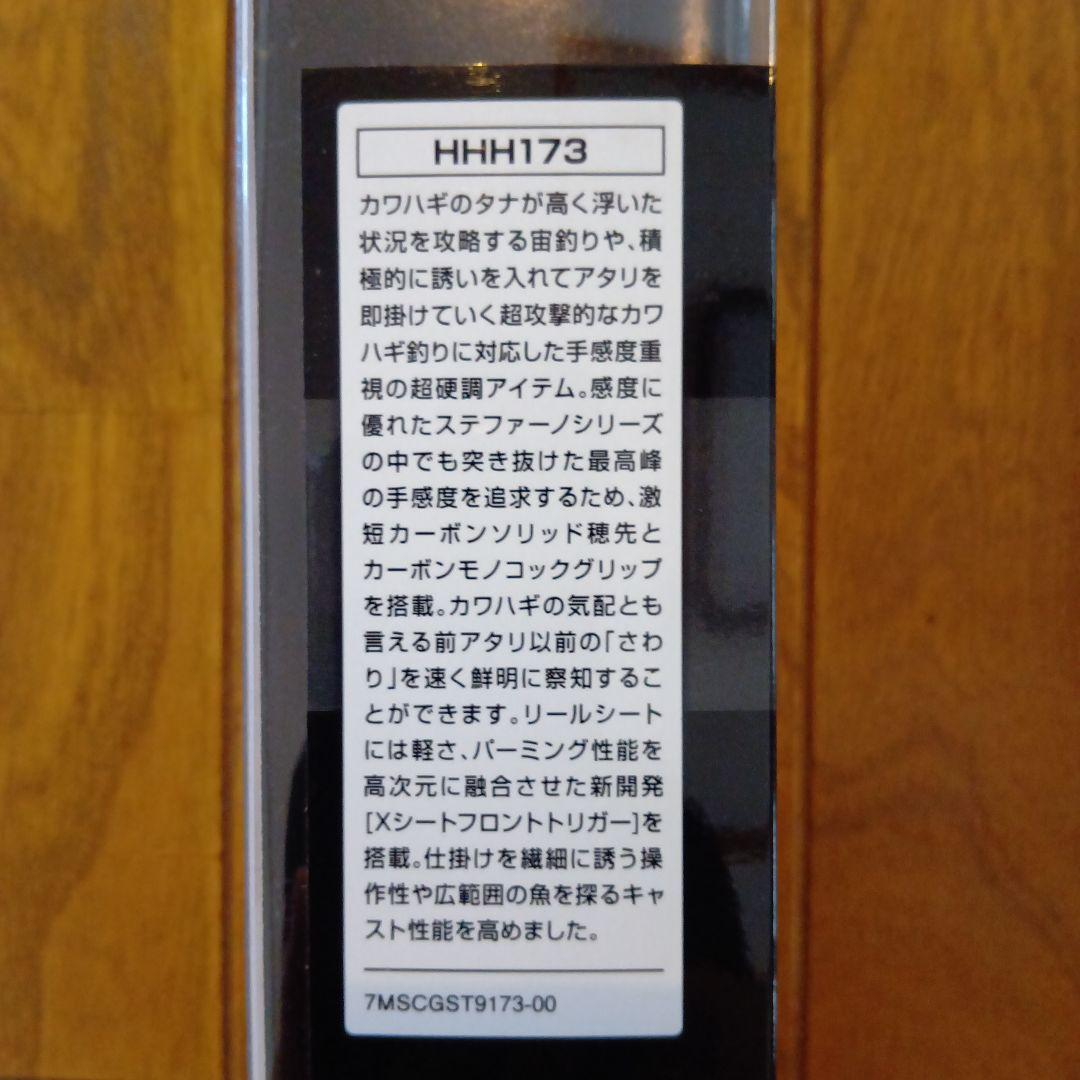 HHH173
カワハギのタナが高く浮いた
状況を攻略する宙釣りや、積
極的に誘いを入れてアタリを
即掛けていく超攻撃的なカワ
ハギ釣りに対応した手感度重
視の超硬調アイテム。感度に
優れたステファーノシリーズ
の中でも突き抜けた最高峰
の手感度を追求するため、激
短カーボンソリッド穂先と
カーボンモノコックグリップ
を搭載。カワハギの気配とも
言える前アタリ以前の「さわ
り」を速く鮮明に察知するこ
とができます。リールシート
には軽さ、パーミング性能を
高次元に融合させた新開発
[Xシートフロントトリガー]を
搭載。仕掛けを繊細に誘う操
作性や広範囲の魚を探るキャ
スト性能を高めました。
7MSCGST9173-00